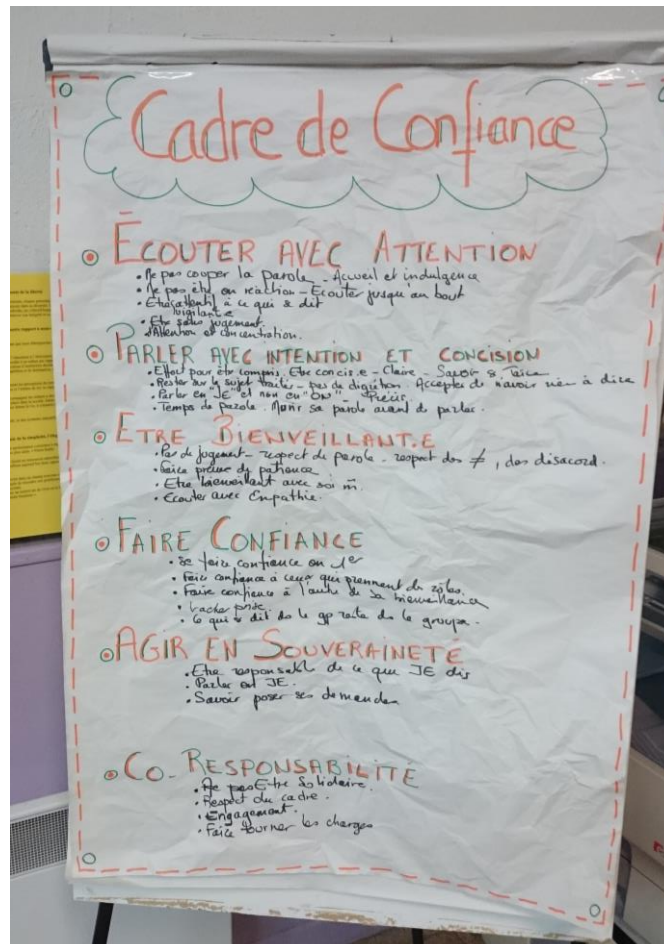 Cadre de Confiance
ÉCOUTER AVEC ATTENTION
• Ne pas couper la parole - Accueil et indulgence
• Ne pas être en réaction - Ecouter jusqu'au bout
• Etre attentif à ce qui se dit
vigilante
• Etre sans jugement.
• Attention et concentration.
PARLER AVEC INTENTION ET CONCISION
• Effort pour être compris. Etre concis.e - Claire - Savoir se Taire
• Rester sur le sujet traité - pas de digression. Accepter de n'avoir rien à dire
• Parler en "JE" et non en "ON" - Précis
• Temps de parole. Mûrir sa parole avant de parler.
ETRE BIENVEILLANT.E
• Pas de jugement - respect de parole - respect des ≠, des désacord.
• Faire preuve de patience
• Etre bienveillant avec soi m̄.
• Ecouter avec Empathie.
FAIRE CONFIANCE
• Se faire confiance en 1er
• Faire confiance à ceux qui prennent des rôles.
• Faire confiance à l'autre de sa bienveillance
• Lacher prise
• Ce qui se dit ds le gp reste ds le groupe.
AGIR EN SOUVERAINETÉ
• Etre responsable de ce que JE dis
• Parler en JE.
• Savoir poser ses demandes
CO-RESPONSABILITÉ
• Ne pas Etre Solidaire.
• Respect du cadre.
• Engagement.
• Faire tourner les charges